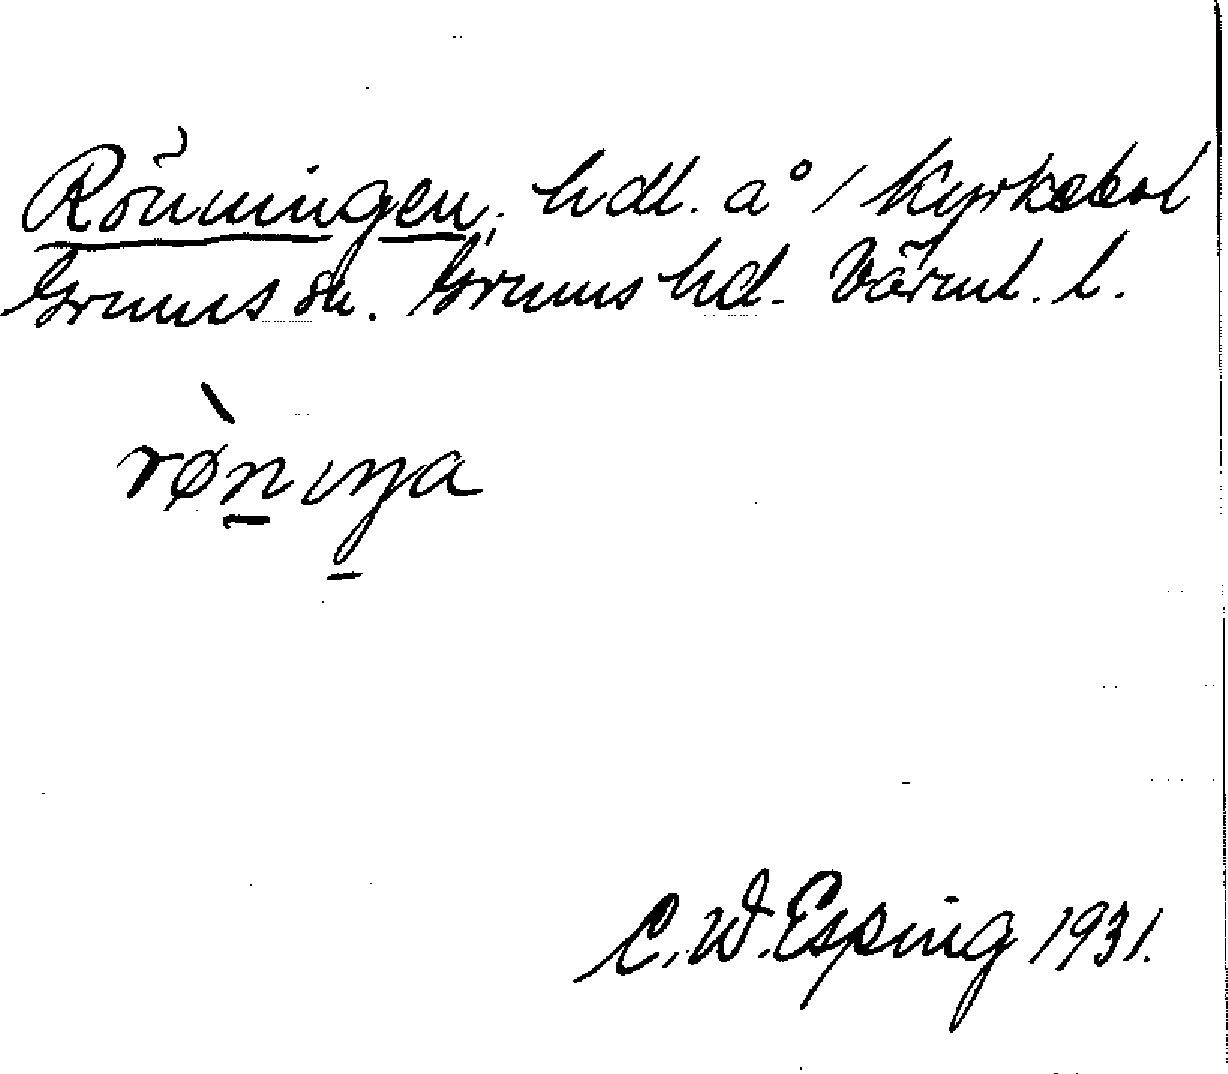 Rönningen, hdl. å 1/1 Kyrkebol
Grums sn. Grums hd. Värml. l.
rø̀nıŋa
C. W. Esping 1931.